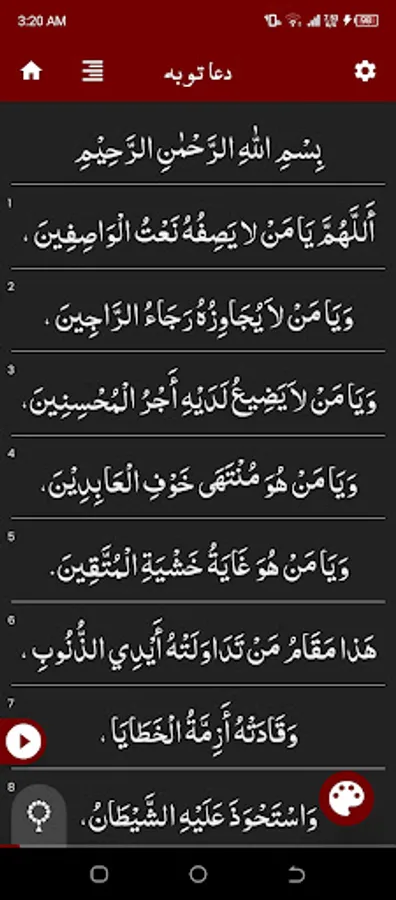 3:20 AM
دعا توبه
بِسْمِ اللهِ الرَّحْمٰنِ الرَّحِيْمِ
1
أَللَّهُمَّ يَا مَنْ لا يَصِفُهُ نَعْتُ الْوَاصِفِينَ ،
2
وَيَا مَنْ لاَ يُجَاوِزُهُ رَجَاءُ الرَّاجِينَ ،
3
وَيَا مَنْ لاَ يَضِيعُ لَدَيْهِ أَجْرُ الْمُحْسِنِينَ،
4
وَيَا مَنْ هُوَ مُنْتَهَى خَوْفِ الْعَابِدِيْنَ،
5
وَيَا مَنْ هُوَ غَايَةُ خَشْيَةِ الْمُتَّقِينَ.
6
هَذا مَقَامُ مَنْ تَدَاوَلَتْهُ أَيْدِي الذُّنُوبِ ،
7
وَقَادَتْهُ أَزِمَّةُ الْخَطَايَا ،
8
وَاسْتَحْوَذَ عَلَيْهِ الشَّيْطَانُ،